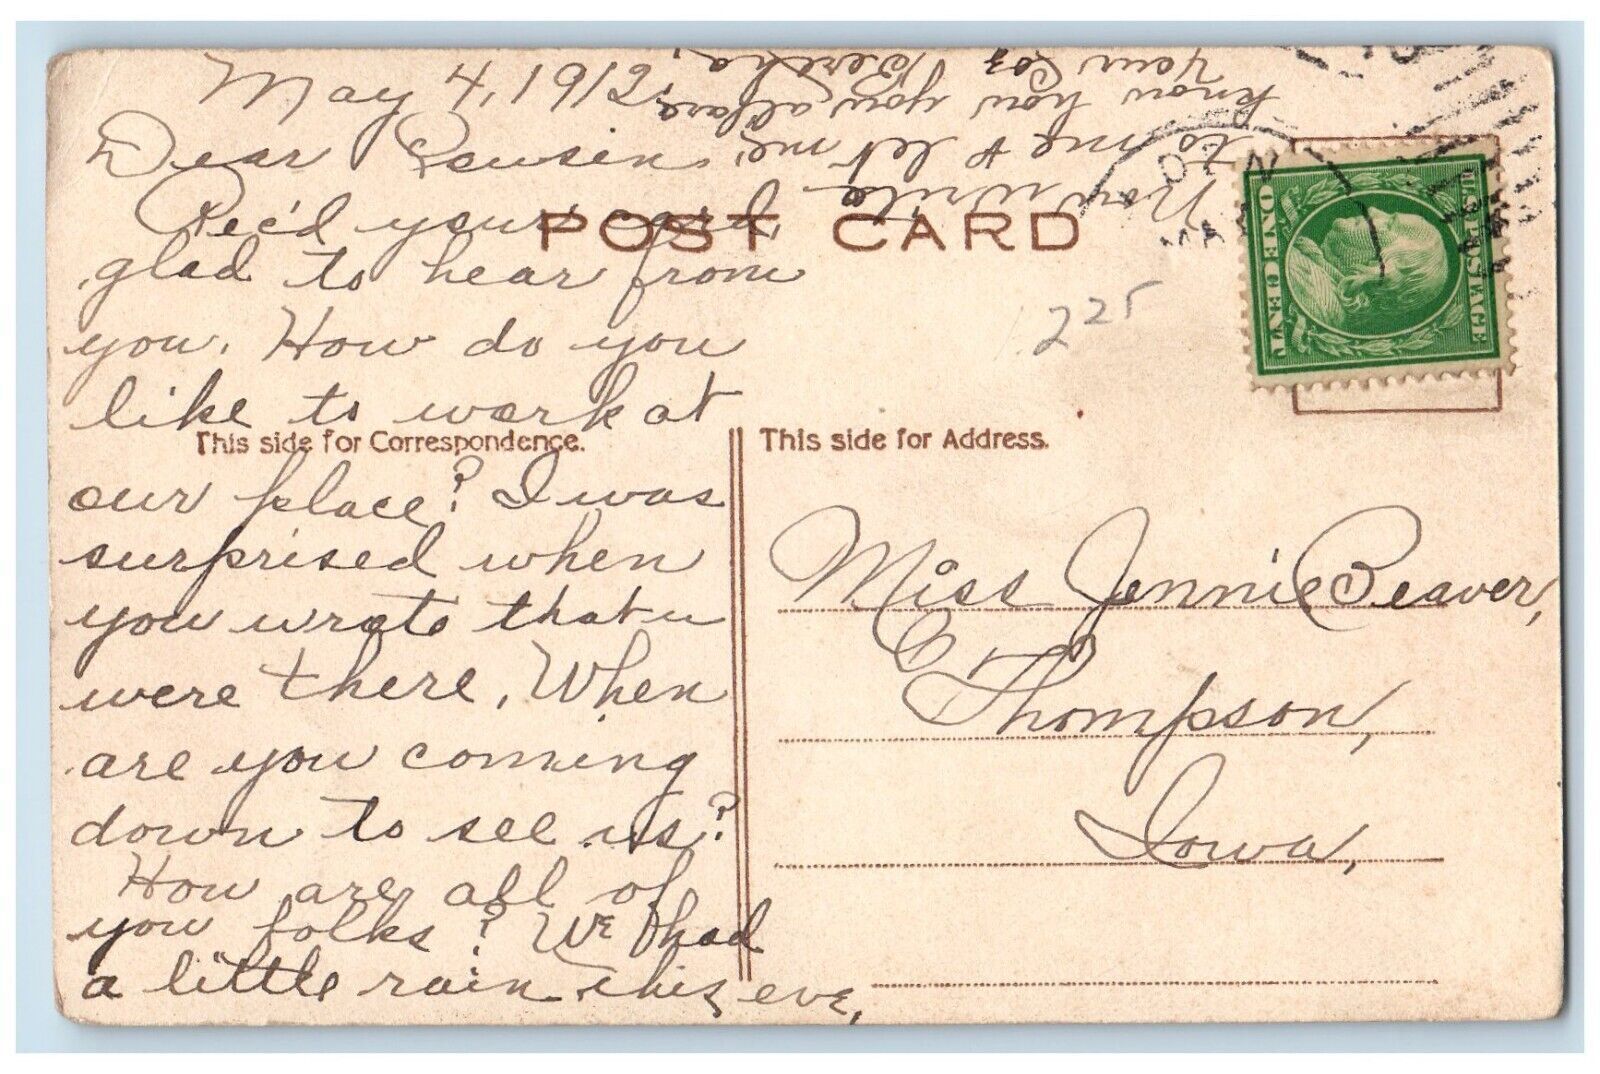 May 4, 1912.
Dear Cousin:
Rec'd your card,
glad to hear from
you. How do you
like to work at
our place? I was
surprised when
you wrote that u
were there. When
are you coming
down to see us?
How are all of
you folks? We had
a little rain this eve,
Now write
to me & let me
know how you all are.
Your Coz
Bertha,
POST CARD
This side for Correspondence.
This side for Address.
225
U.S. POSTAGE
ONE CENT
Miss Jennie Beaver,
Thompson,
Iowa,